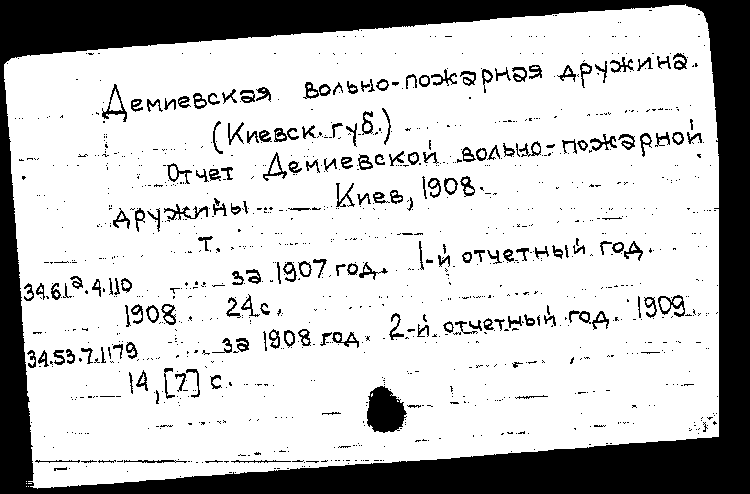 Демиевская вольно-пожарная дружина.
(Киевск. губ.)
Отчет Демиевской вольно-пожарной
дружины... — Киев, 1908.
т.
34.61а.4.110 ... за 1907 год. 1-й отчетный год.
1908. 24 с.
34.53.7.1179 ... за 1908 год. 2-й отчетный год. 1909.
14, [7] с.